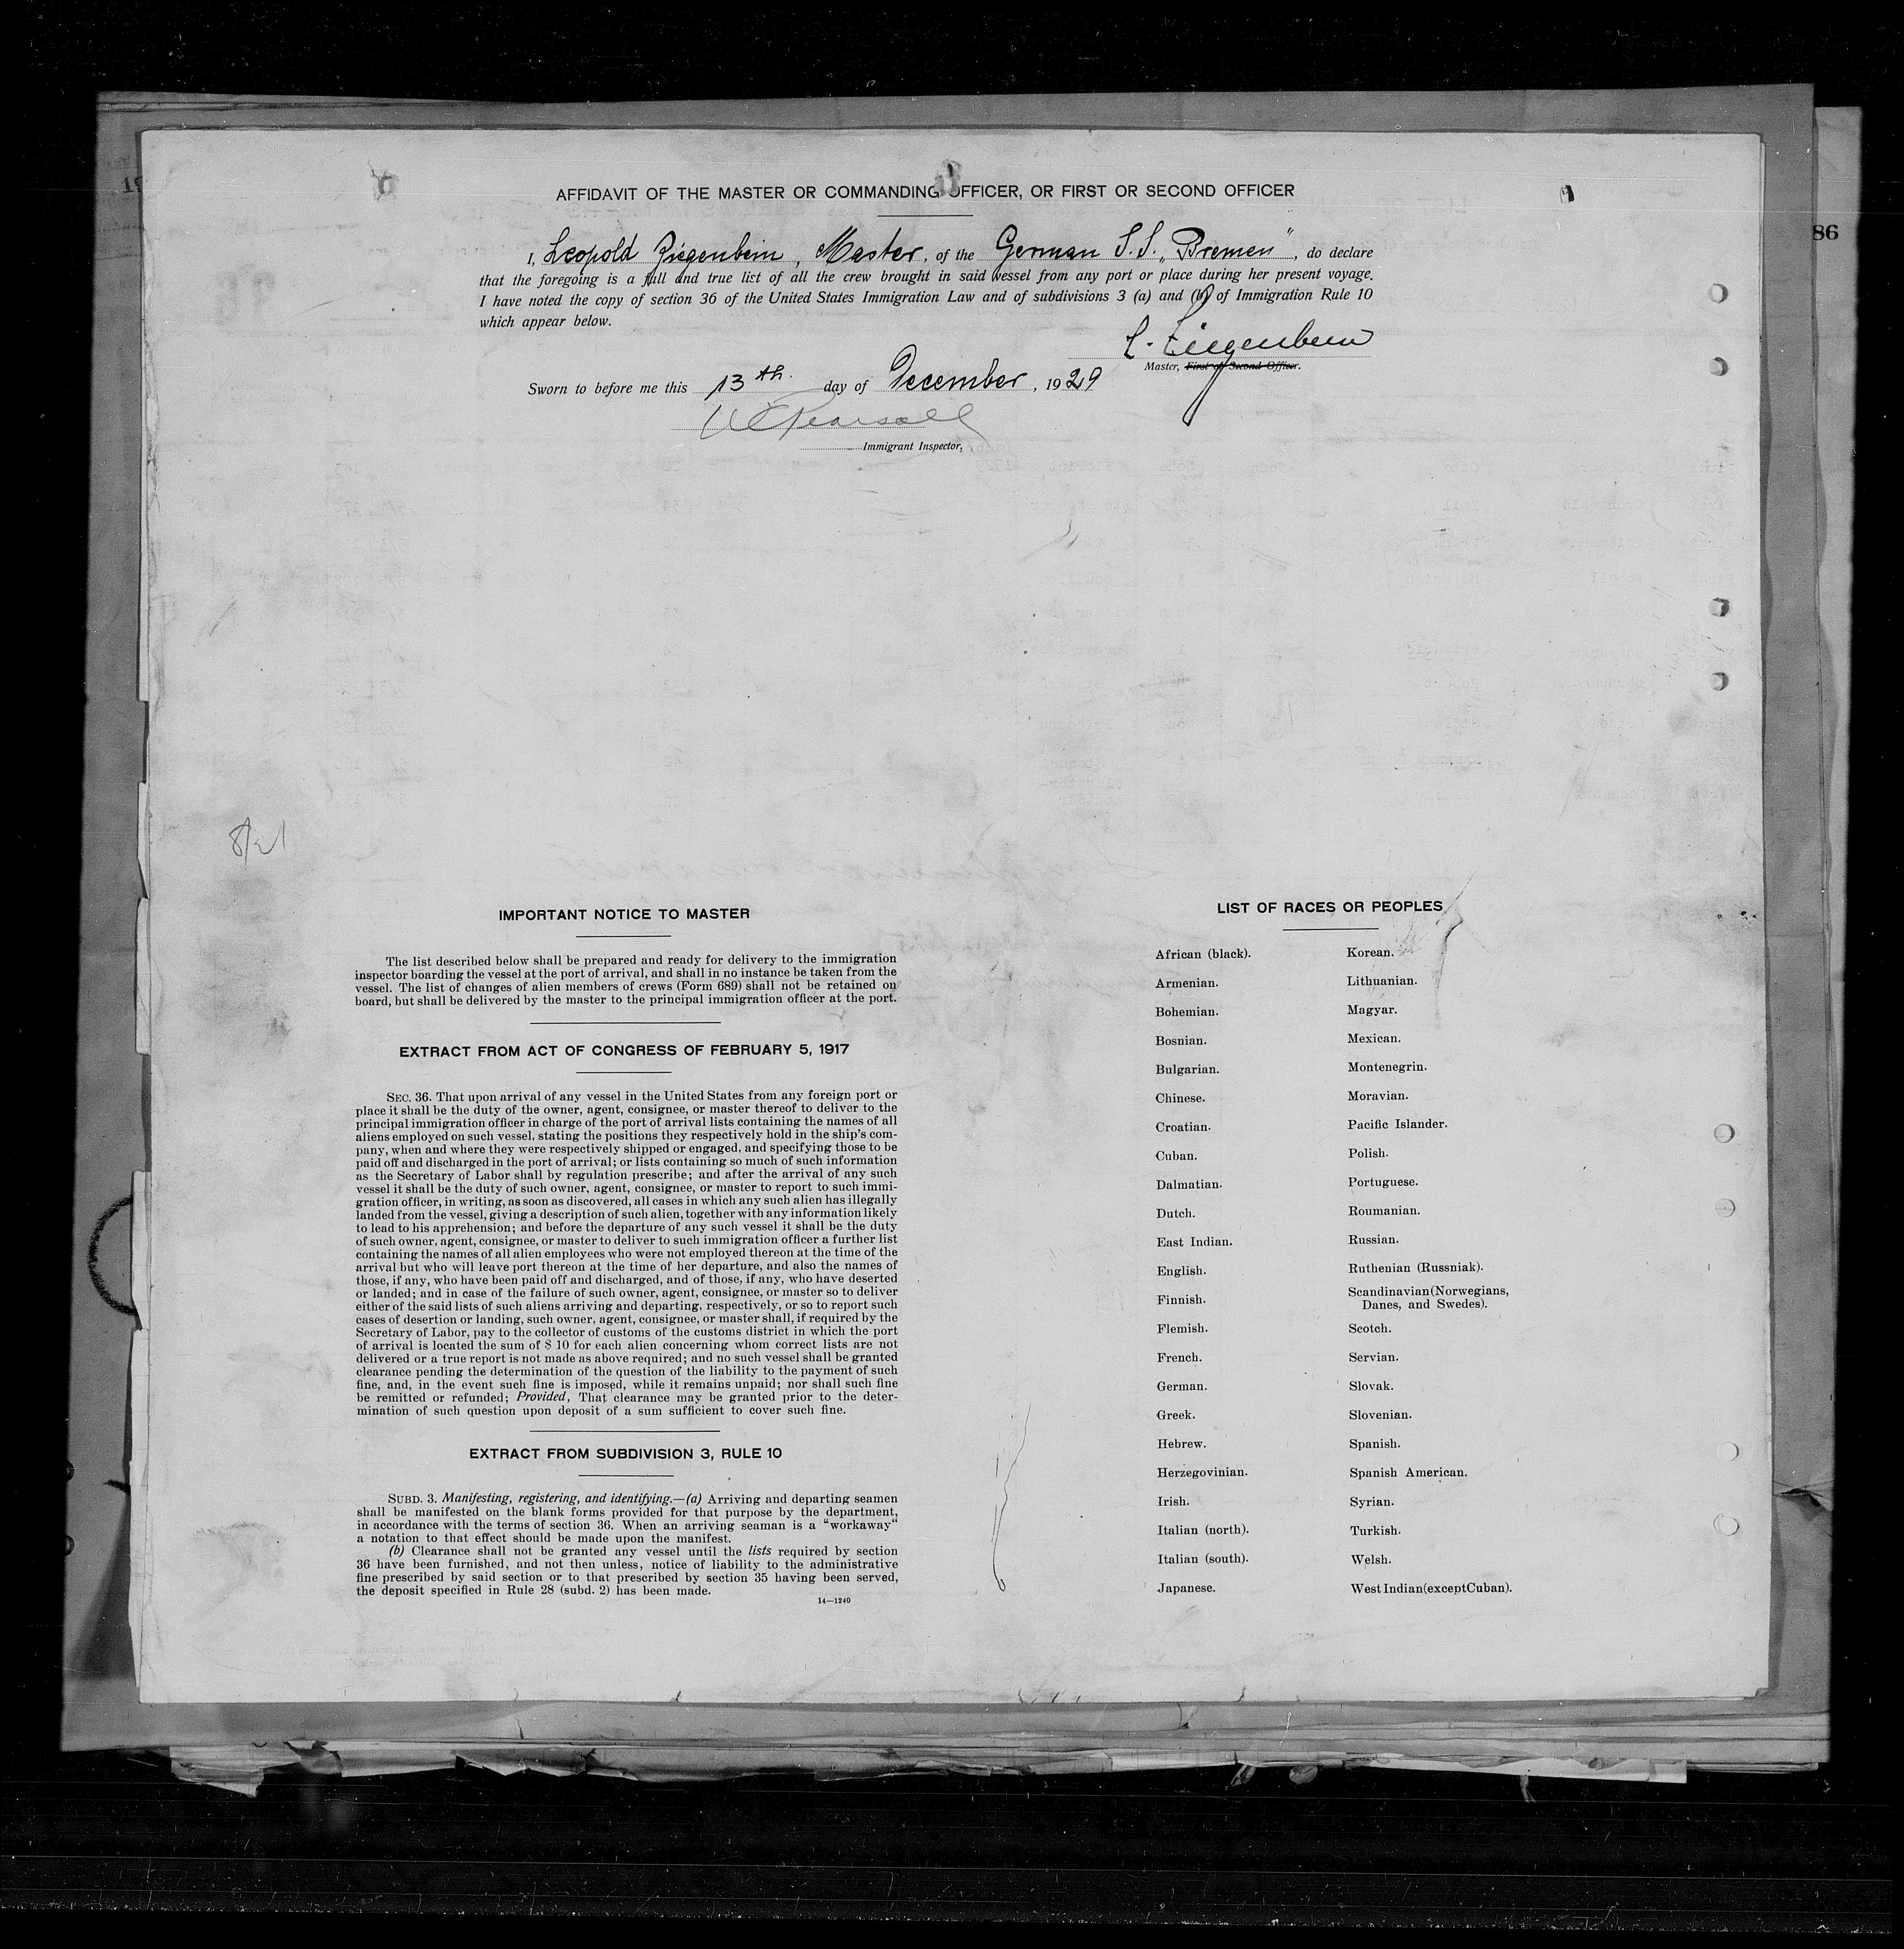 AFFIDAVIT OF THE MASTER OR COMMANDING OFFICER, OR FIRST OR SECOND OFFICER
I, Leopold Ziegenbein, Master, of the German S.S. „Bremen", do declare
that the foregoing is a full and true list of all the crew brought in said vessel from any port or place during her present voyage.
I have noted the copy of section 36 of the United States Immigration Law and of subdivisions 3 (a) and (b) of Immigration Rule 10
which appear below.
L. Ziegenbein
Master, First or Second Officer.
Sworn to before me this 13th. day of December, 1929
Pearsall
Immigrant Inspector.
86
IMPORTANT NOTICE TO MASTER
The list described below shall be prepared and ready for delivery to the immigration
inspector boarding the vessel at the port of arrival, and shall in no instance be taken from the
vessel. The list of changes of alien members of crews (Form 689) shall not be retained on
board, but shall be delivered by the master to the principal immigration officer at the port.
EXTRACT FROM ACT OF CONGRESS OF FEBRUARY 5, 1917
SEC. 36. That upon arrival of any vessel in the United States from any foreign port or
place it shall be the duty of the owner, agent, consignee, or master thereof to deliver to the
principal immigration officer in charge of the port of arrival lists containing the names of all
aliens employed on such vessel, stating the positions they respectively hold in the ship's com-
pany, when and where they were respectively shipped or engaged, and specifying those to be
paid off and discharged in the port of arrival; or lists containing so much of such information
as the Secretary of Labor shall by regulation prescribe; and after the arrival of any such
vessel it shall be the duty of such owner, agent, consignee, or master to report to such immi-
gration officer, in writing, as soon as discovered, all cases in which any such alien has illegally
landed from the vessel, giving a description of such alien, together with any information likely
to lead to his apprehension; and before the departure of any such vessel it shall be the duty
of such owner, agent, consignee, or master to deliver to such immigration officer a further list
containing the names of all alien employees who were not employed thereon at the time of the
arrival but who will leave port thereon at the time of her departure, and also the names of
those, if any, who have been paid off and discharged, and of those, if any, who have deserted
or landed; and in case of the failure of such owner, agent, consignee, or master so to deliver
either of the said lists of such aliens arriving and departing, respectively, or so to report such
cases of desertion or landing, such owner, agent, consignee, or master shall, if required by the
Secretary of Labor, pay to the collector of customs of the customs district in which the port
of arrival is located the sum of $ 10 for each alien concerning whom correct lists are not
delivered or a true report is not made as above required; and no such vessel shall be granted
clearance pending the determination of the question of the liability to the payment of such
fine, and, in the event such fine is imposed, while it remains unpaid; nor shall such fine
be remitted or refunded; Provided, That clearance may be granted prior to the deter-
mination of such question upon deposit of a sum sufficient to cover such fine.
EXTRACT FROM SUBDIVISION 3, RULE 10
SUBD. 3. Manifesting, registering, and identifying.—(a) Arriving and departing seamen
shall be manifested on the blank forms provided for that purpose by the department,
in accordance with the terms of section 36. When an arriving seaman is a "workaway"
a notation to that effect should be made upon the manifest.
(b) Clearance shall not be granted any vessel until the lists required by section
36 have been furnished, and not then unless, notice of liability to the administrative
fine prescribed by said section or to that prescribed by section 35 having been served,
the deposit specified in Rule 28 (subd. 2) has been made.
14—1240
LIST OF RACES OR PEOPLES
African (black).
Armenian.
Bohemian.
Bosnian.
Bulgarian.
Chinese.
Croatian.
Cuban.
Dalmatian.
Dutch.
East Indian.
English.
Finnish.
Flemish.
French.
German.
Greek.
Hebrew.
Herzegovinian.
Irish.
Italian (north).
Italian (south).
Japanese.
Korean.
Lithuanian.
Magyar.
Mexican.
Montenegrin.
Moravian.
Pacific Islander.
Polish.
Portuguese.
Roumanian.
Russian.
Ruthenian (Russniak).
Scandinavian (Norwegians,
Danes, and Swedes).
Scotch.
Servian.
Slovak.
Slovenian.
Spanish.
Spanish American.
Syrian.
Turkish.
Welsh.
West Indian (except Cuban).